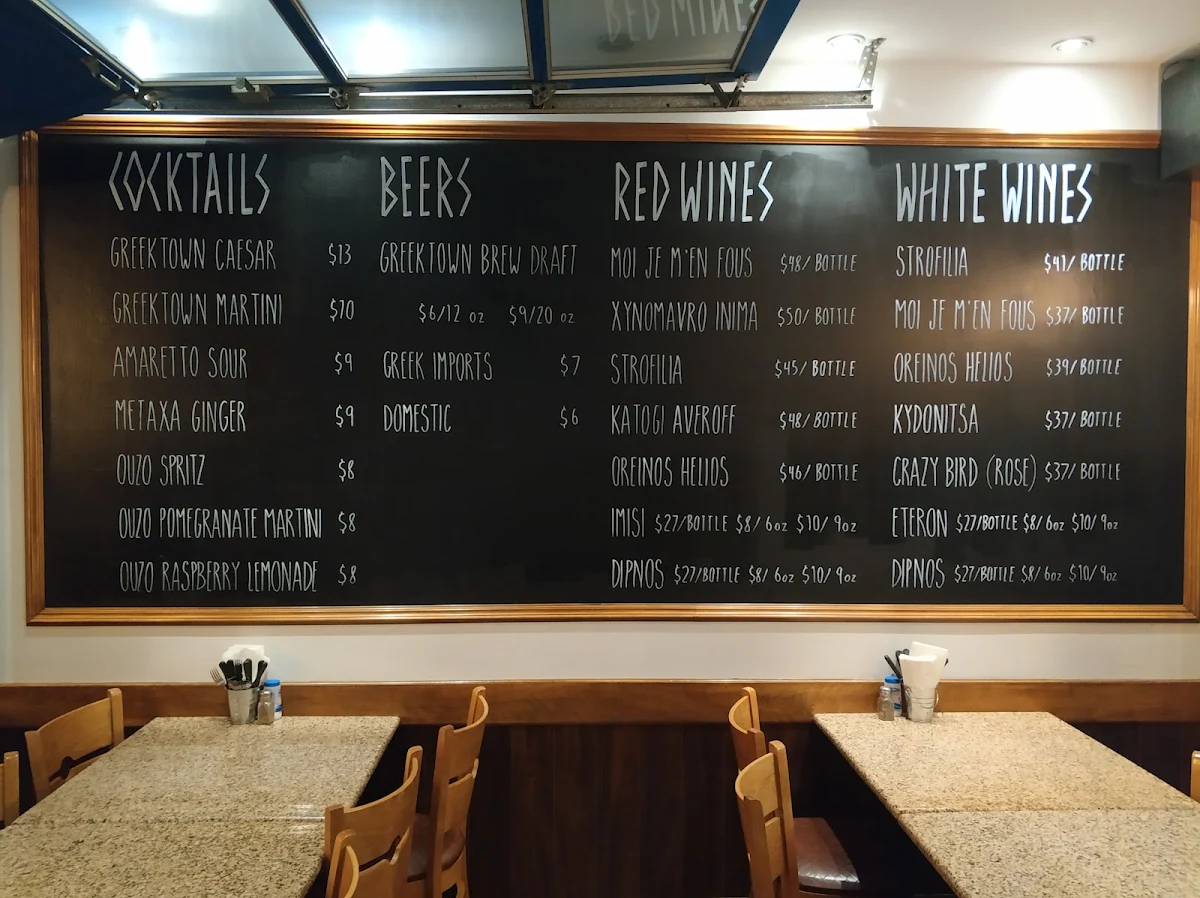 COCKTAILS
GREEKTOWN CAESAR $13
GREEKTOWN MARTINI $10
AMARETTO SOUR $9
METAXA GINGER $9
OUZO SPRITZ $8
OUZO POMEGRANATE MARTINI $8
OUZO RASPBERRY LEMONADE $8
BEERS
GREEKTOWN BREW DRAFT
$6/12 oz $9/20 oz
GREEK IMPORTS $7
DOMESTIC $6
RED WINES
MOI JE M'EN FOUS $48/ BOTTLE
XYNOMAVRO INIMA $50/ BOTTLE
STROFILIA $45/ BOTTLE
KATOGI AVEROFF $48/ BOTTLE
OREINOS HELIOS $46/ BOTTLE
IMISI $27/BOTTLE $8/ 6oz $10/ 9oz
DIPNOS $27/BOTTLE $8/ 6oz $10/ 9oz
WHITE WINES
STROFILIA $41/ BOTTLE
MOI JE M'EN FOUS $37/ BOTTLE
OREINOS HELIOS $39/ BOTTLE
KYDONITSA $37/ BOTTLE
CRAZY BIRD (ROSE) $37/ BOTTLE
ETERON $27/BOTTLE $8/ 6oz $10/ 9oz
DIPNOS $27/BOTTLE $8/ 6oz $10/ 9oz
RED WINES